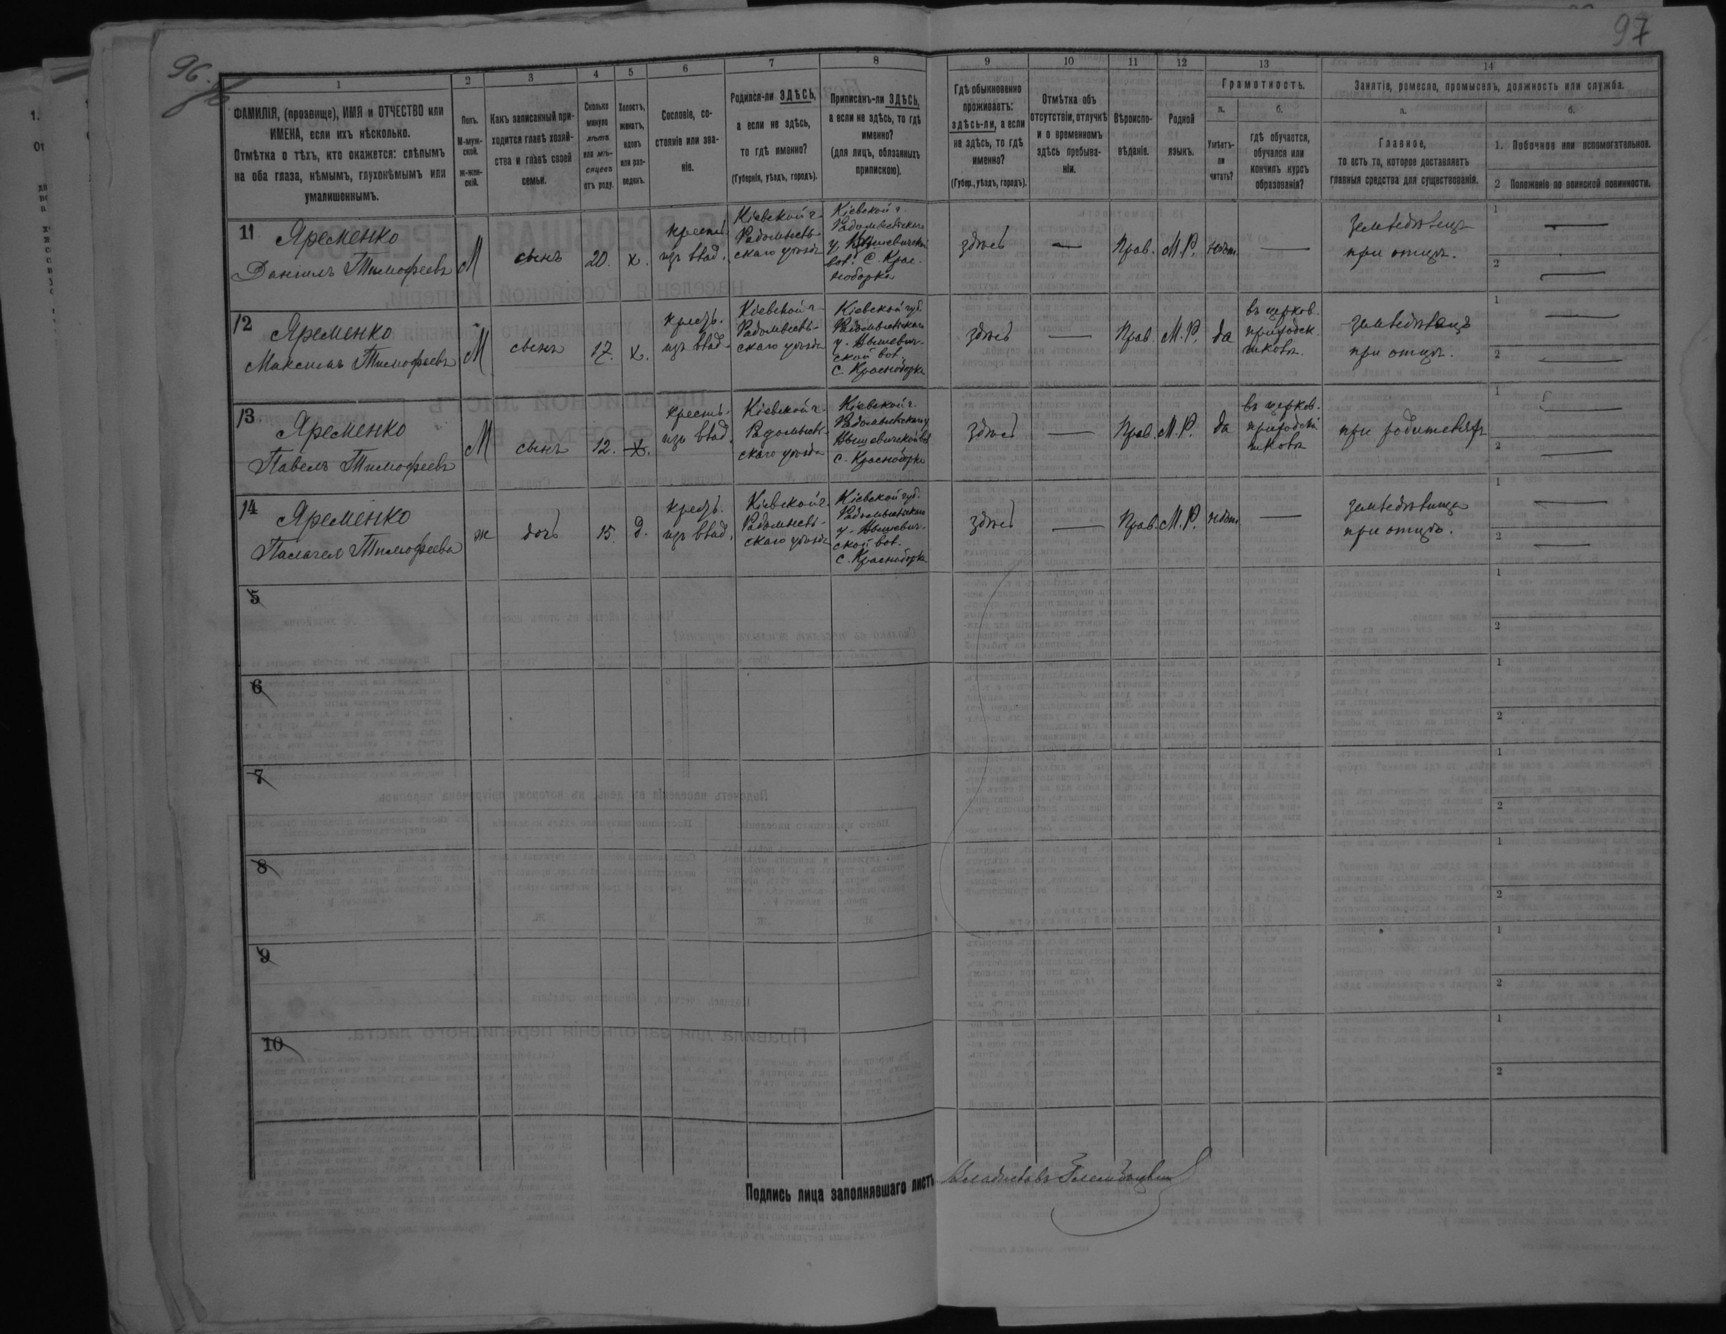 96.
97
1
2
3
4
5
6
7
8
9
10
11
12
13
14
ФАМИЛІЯ, (прозвище), ИМЯ и ОТЧЕСТВО или
ИМЕНА, если ихъ нѣсколько.
Отмѣтка о тѣхъ, кто окажется: слѣпымъ
на оба глаза, нѣмымъ, глухонѣмымъ или
умалишоннымъ.
Полъ.
М-муж-
ской.
ж-жен-
скій.
Какъ записанный при-
ходится главѣ хозяй-
ства и главѣ своей
семьи.
Сколько
минуло
лѣтъ
или мѣ-
сяцевъ
отъ роду.
Холостъ,
женатъ,
вдовъ
или раз-
веденъ.
Сословіе, со-
стояніе или зва-
ніе.
Родился-ли ЗДѢСЬ,
а если не здѣсь,
то гдѣ именно?
(Губернія, уѣздъ, городъ).
Приписанъ-ли ЗДѢСЬ,
а если не здѣсь, то гдѣ
именно?
(для лицъ, обязанныхъ
припискою).
Гдѣ обыкновенно
проживаетъ:
здѣсь-ли, а если
не здѣсь, то гдѣ
именно?
(Губер., уѣздъ, городъ).
Отмѣтка объ
отсутствіи, отлучкѣ
и о временномъ
здѣсь пребыва-
ніи.
Вѣроиспо-
вѣданіе.
Родной
языкъ.
Грамотность.
а.
Умѣетъ-
ли
читать?
б.
гдѣ обучается,
обучался или
кончилъ курсъ
образованія?
Занятіе, ремесло, промыселъ, должность или служба.
а.
Главное,
то есть то, которое доставляетъ
главныя средства для существованія.
б.
1. Побочное или вспомогательное.
2 Положеніе по воинской повинности.
11
Яременко
Данилъ Тимофеевъ
М
сынъ
20.
х.
крест.
изъ влад.
Кіевской г.
Радомысль-
скаго уѣзда
Кіевской г.
Радомысльскаго
у.
вол. С. Крас-
ноборка
здѣсь
—
Прав.
М.Р.
нѣтъ
—
Земледѣлецъ
при отцѣ.
1 —
2 —
12
Яременко
Максимъ Тимофеевъ
М
сынъ
17.
х.
крест.
изъ влад.
Кіевской г.
Радомысль-
скаго уѣзда
Кіевской губ.
Радомысльскаго
у.
ской вол.
С. Красноборка
здѣсь
—
Прав.
М.Р.
да
въ церков.
приходск.
школѣ.
земледѣлецъ
при отцѣ.
1 —
2 —
13
Яременко
Павелъ Тимофеевъ
М
сынъ
12.
х.
крест.
изъ влад.
Кіевской г.
Радомысль-
скаго уѣзда
Кіевской г.
Радомысльскаго у
С. Красноборка
здѣсь
—
Прав.
М.Р.
да
въ церков.
приходск
школѣ
при родителяхъ
1 —
2 —
14
Яременко
Палагея Тимофеева
ж
дочь
15.
д.
крест.
изъ влад.
Кіевской г.
Радомысль-
скаго уѣзда
Кіевской губ.
Радомысльскаго
у.
ской вол.
С. Красноборка
здѣсь
—
Прав.
М.Р.
нѣтъ
—
земледѣлица
при отцѣ.
1 —
2 —
5
1
2
6
1
2
7
1
2
8
1
2
9
1
2
10
1
2
Подпись лица заполнявшаго листъ